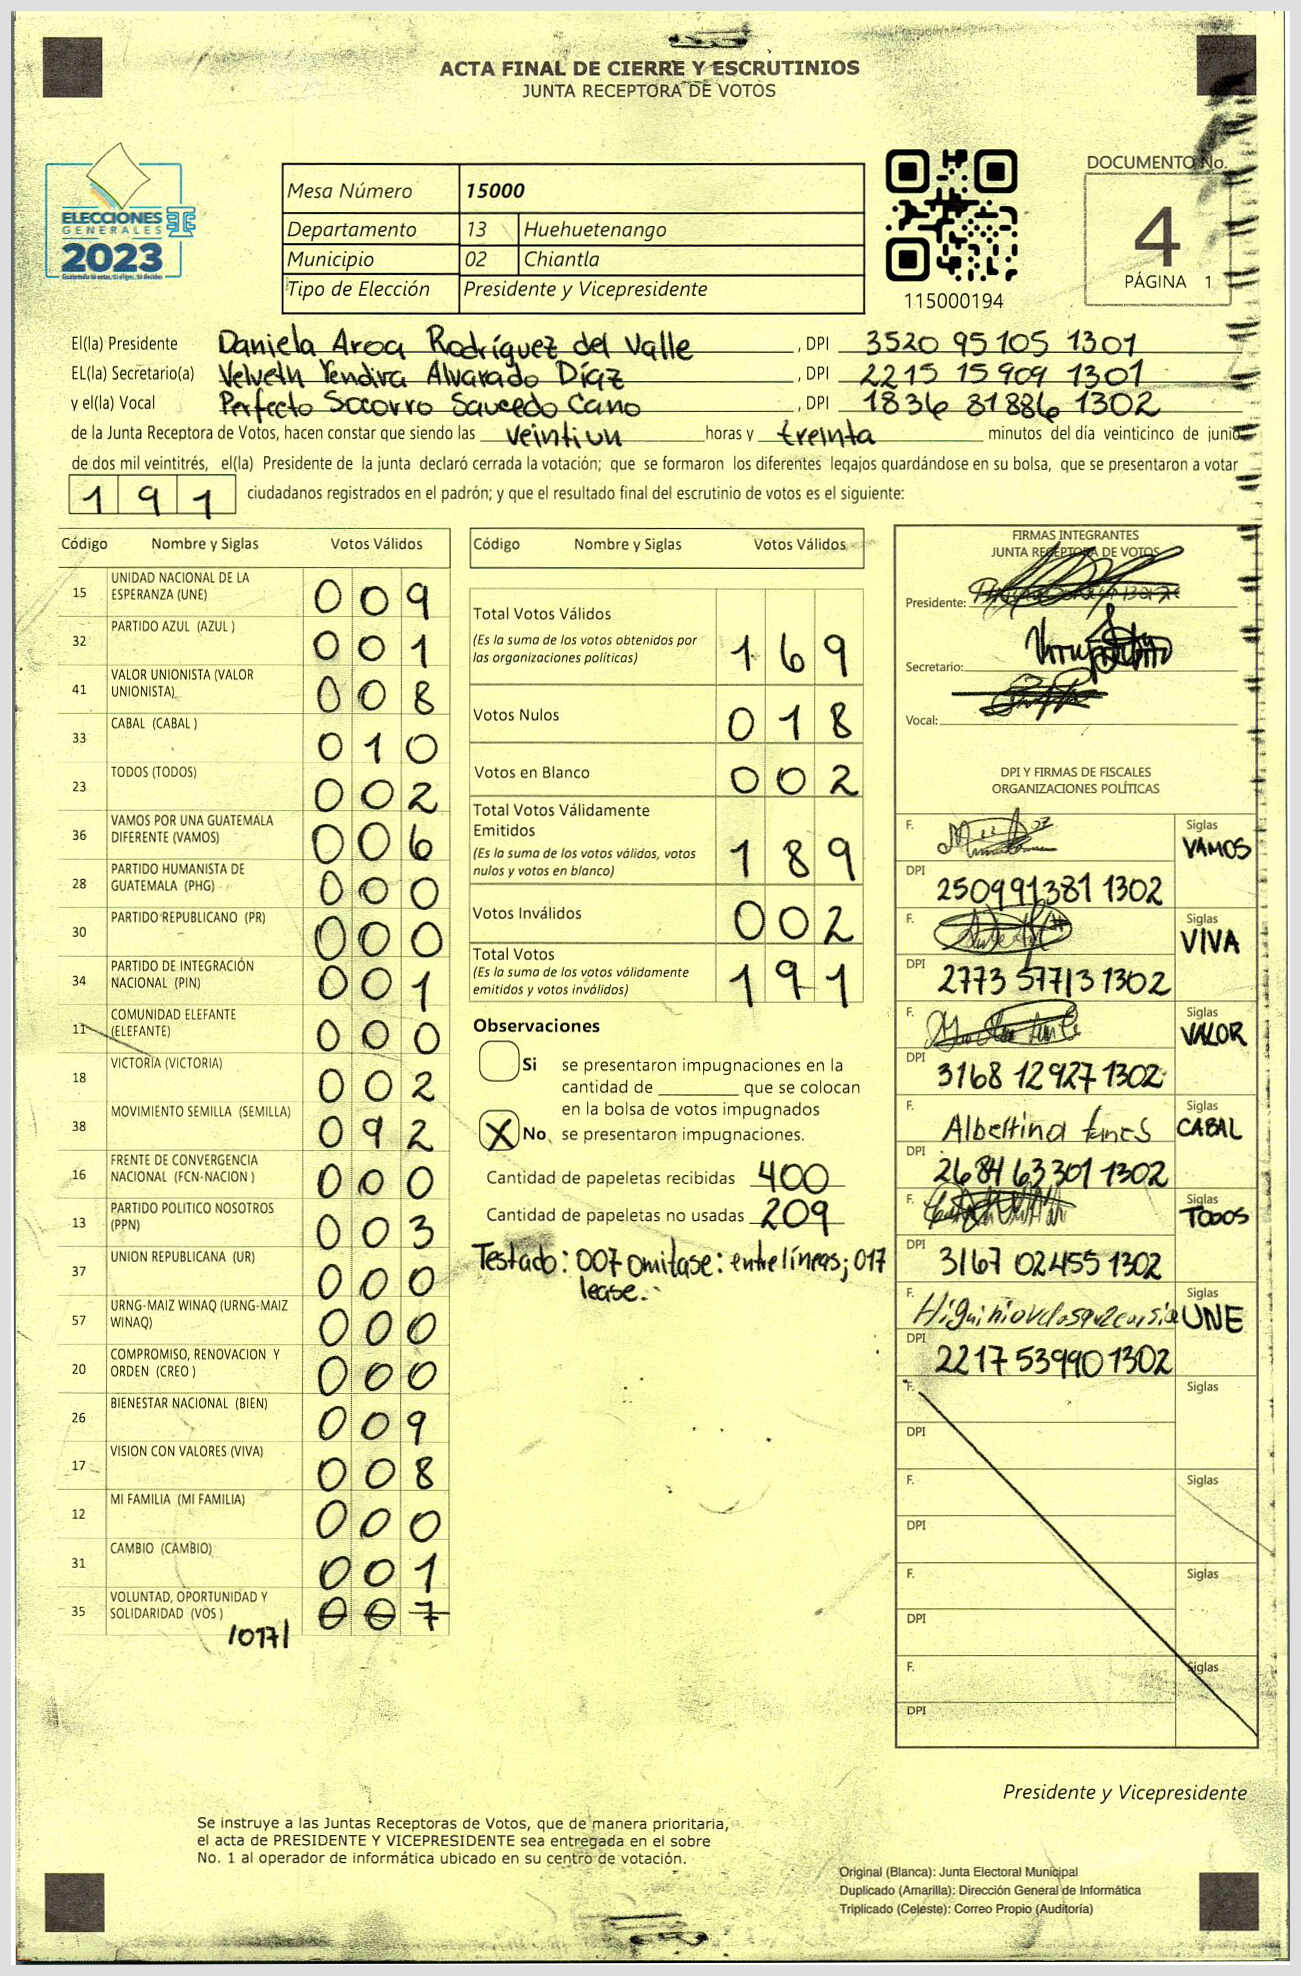 ACTA FINAL DE CIERRE Y ESCRUTINIOS
JUNTA RECEPTORA DE VOTOS
ELECCIONES
GENERALES
2023
Mesa Número 15000
Departamento 13 Huehuetenango
Municipio 02 Chiantla
Tipo de Elección Presidente y Vicepresidente
115000194
DOCUMENTO No.
4
PÁGINA 1
El(la) Presidente Daniela Aroa Rodríguez del Valle, DPI 3520 95105 1301
EL(la) Secretario(a) Velveth Yendira Alvarado Díaz, DPI 2215 15909 1301
y el(la) Vocal Perfecto Socorro Saucedo Cano, DPI 1836 81886 1302
de la Junta Receptora de Votos, hacen constar que siendo las veintiun horas y treinta minutos del día veinticinco de junio
de dos mil veintitrés, el(la) Presidente de la junta declaró cerrada la votación; que se formaron los diferentes legajos guardándose en su bolsa, que se presentaron a votar
191 ciudadanos registrados en el padrón; y que el resultado final del escrutinio de votos es el siguiente:
Código Nombre y Siglas Votos Válidos
15 UNIDAD NACIONAL DE LA ESPERANZA (UNE) 009
32 PARTIDO AZUL (AZUL ) 001
41 VALOR UNIONISTA (VALOR UNIONISTA) 008
33 CABAL (CABAL ) 010
23 TODOS (TODOS) 002
36 VAMOS POR UNA GUATEMALA DIFERENTE (VAMOS) 006
28 PARTIDO HUMANISTA DE GUATEMALA (PHG) 000
30 PARTIDO REPUBLICANO (PR) 000
34 PARTIDO DE INTEGRACIÓN NACIONAL (PIN) 001
11 COMUNIDAD ELEFANTE (ELEFANTE) 000
18 VICTORIA (VICTORIA) 002
38 MOVIMIENTO SEMILLA (SEMILLA) 092
16 FRENTE DE CONVERGENCIA NACIONAL (FCN-NACION ) 000
13 PARTIDO POLITICO NOSOTROS (PPN) 003
37 UNION REPUBLICANA (UR) 000
57 URNG-MAIZ WINAQ (URNG-MAIZ WINAQ) 000
20 COMPROMISO, RENOVACION Y ORDEN (CREO ) 000
26 BIENESTAR NACIONAL (BIEN) 009
17 VISION CON VALORES (VIVA) 008
12 MI FAMILIA (MI FAMILIA) 000
31 CAMBIO (CAMBIO) 001
35 VOLUNTAD, OPORTUNIDAD Y SOLIDARIDAD (VOS ) 007
/017/
Código Nombre y Siglas Votos Válidos
Total Votos Válidos 169
(Es la suma de los votos obtenidos por
las organizaciones políticas)
Votos Nulos 018
Votos en Blanco 002
Total Votos Válidamente
Emitidos
(Es la suma de los votos válidos, votos
nulos y votos en blanco) 189
Votos Inválidos 002
Total Votos
(Es la suma de los votos válidamente
emitidos y votos inválidos) 191
Observaciones
Si se presentaron impugnaciones en la
cantidad de ________ que se colocan
en la bolsa de votos impugnados
X No se presentaron impugnaciones.
Cantidad de papeletas recibidas 400
Cantidad de papeletas no usadas 209
Testado: 007 omitase: entre líneas; 017
lease.
FIRMAS INTEGRANTES
JUNTA RECEPTORA DE VOTOS
Presidente:
Secretario:
Vocal:
DPI Y FIRMAS DE FISCALES
ORGANIZACIONES POLÍTICAS
F. Siglas VAMOS
DPI 250991381 1302
F. Siglas VIVA
DPI 2773 57713 1302
F. Siglas VALOR
DPI 3168 12927 1302
F. Albertina Siglas CABAL
DPI 2684 63301 1302
F. Siglas TODOS
DPI 3167 02455 1302
F. Siglas UNE
DPI 2217 53990 1302
F. Siglas
DPI
F. Siglas
DPI
F. Siglas
DPI
F. Siglas
DPI
Presidente y Vicepresidente
Se instruye a las Juntas Receptoras de Votos, que de manera prioritaria,
el acta de PRESIDENTE Y VICEPRESIDENTE sea entregada en el sobre
No. 1 al operador de informática ubicado en su centro de votación.
Original (Blanca): Junta Electoral Municipal
Duplicado (Amarilla): Dirección General de Informática
Triplicado (Celeste): Correo Propio (Auditoría)